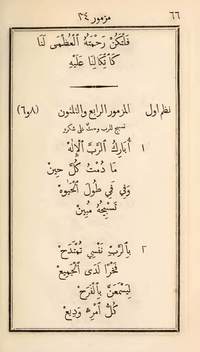 ٦٦ مزمور ٣٤
فَلْتَكُنْ رَحْمَتُهُ ٱلْعُظْمَى لَنَا
كَٱتِّكَالِنَا عَلَيْهِ
نظم اول المزمور الرابع والثلثون (٨و٦)
تسبيح للرب وحثّ على شكرهِ
١ أُبَارِكُ ٱلرَّبَّ ٱلْإِلٰهْ
مَا دُمْتُ كُلَّ حِينْ
وَفِي فَمِي طُولَ ٱلْحَيٰوةْ
تَسْبِيحُهُ مُبِينْ
٢ بِٱلرَّبِّ نَفْسِي تَمْتَدِحْ
فَخْرًا لَدَى ٱلْجَمِيعْ
لِيَسْمَعَنَّ بِٱلْفَرَحْ
كُلُّ ٱمْرِءٍ وَدِيعْ